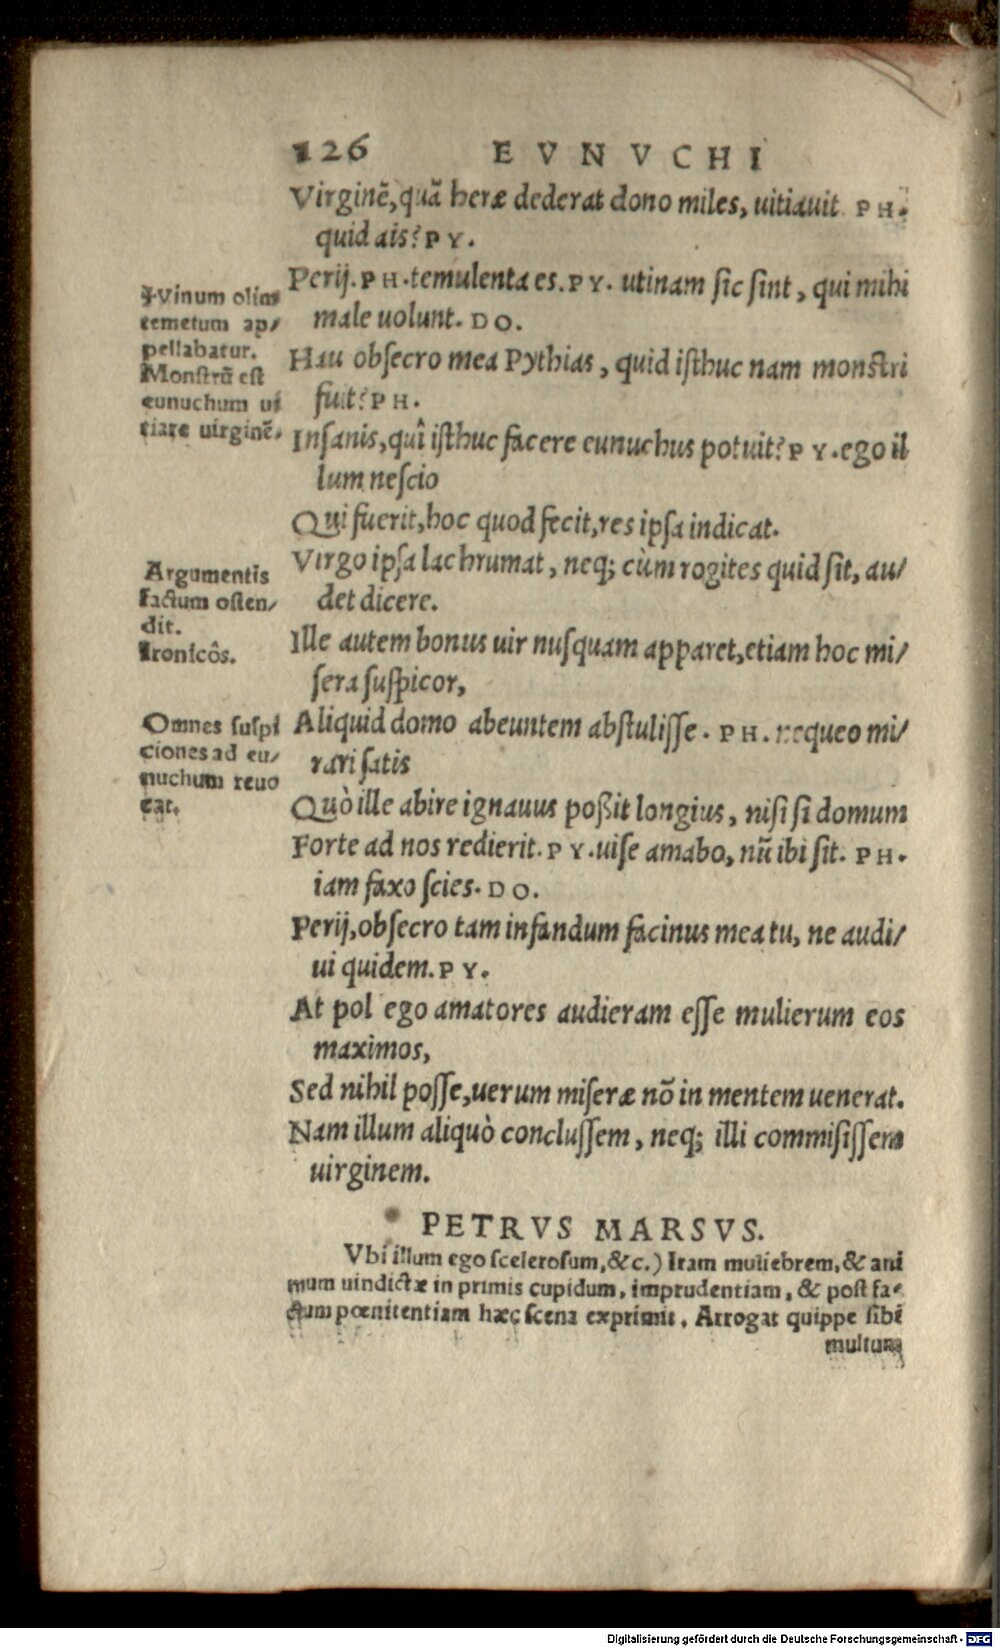 126 EVNVCHI
Virginẽ, quã heræ dederat dono miles, uitiauit PH.
quid ais? PY.
Perij. PH. temulenta es. PY. utinam sic sint, qui mihi
male uolunt. DO.
Hau obsecro mea Pythias, quid isthuc nam monstri
fuit? PH.
Insanis, quî isthuc facere eunuchus potuit? PY. ego il
lum nescio
Qui fuerit, hoc quod fecit, res ipsa indicat.
Virgo ipsa lachrumat, neq; cùm rogites quid sit, au/
det dicere.
Ille autem bonus uir nusquam apparet, etiam hoc mi/
sera suspicor,
Aliquid domo abeuntem abstulisse. PH. nequeo mi/
rari satis
Quò ille abire ignauus poßit longius, nisi si domum
Forte ad nos redierit. PY. uise amabo, nũ ibi sit. PH.
iam faxo scies. DO.
Perij, obsecro tam infandum facinus mea tu, ne audi/
ui quidem. PY.
At pol ego amatores audieram esse mulierum eos
maximos,
Sed nihil posse, uerum miseræ nõ in mentem uenerat.
Nam illum aliquò conclussem, neq; illi commisissem
uirginem.
Vinum olim
temetum ap/
pellabatur.
Monstrũ est
eunuchum ui
tiare uirginẽ.
Argumentis
factum osten/
dit.
Ironicôs.
Omnes suspi
ciones ad eu/
nuchum reuo
cat.
PETRVS MARSVS.
Vbi illum ego scelerosum, &c.) Iram muliebrem, & ani
mum uindictæ in primis cupidum, imprudentiam, & post fa-
ctum pœnitentiam hæc scena exprimit. Arrogat quippe sibi
multum
Digitalisierung gefördert durch die Deutsche Forschungsgemeinschaft - DFG